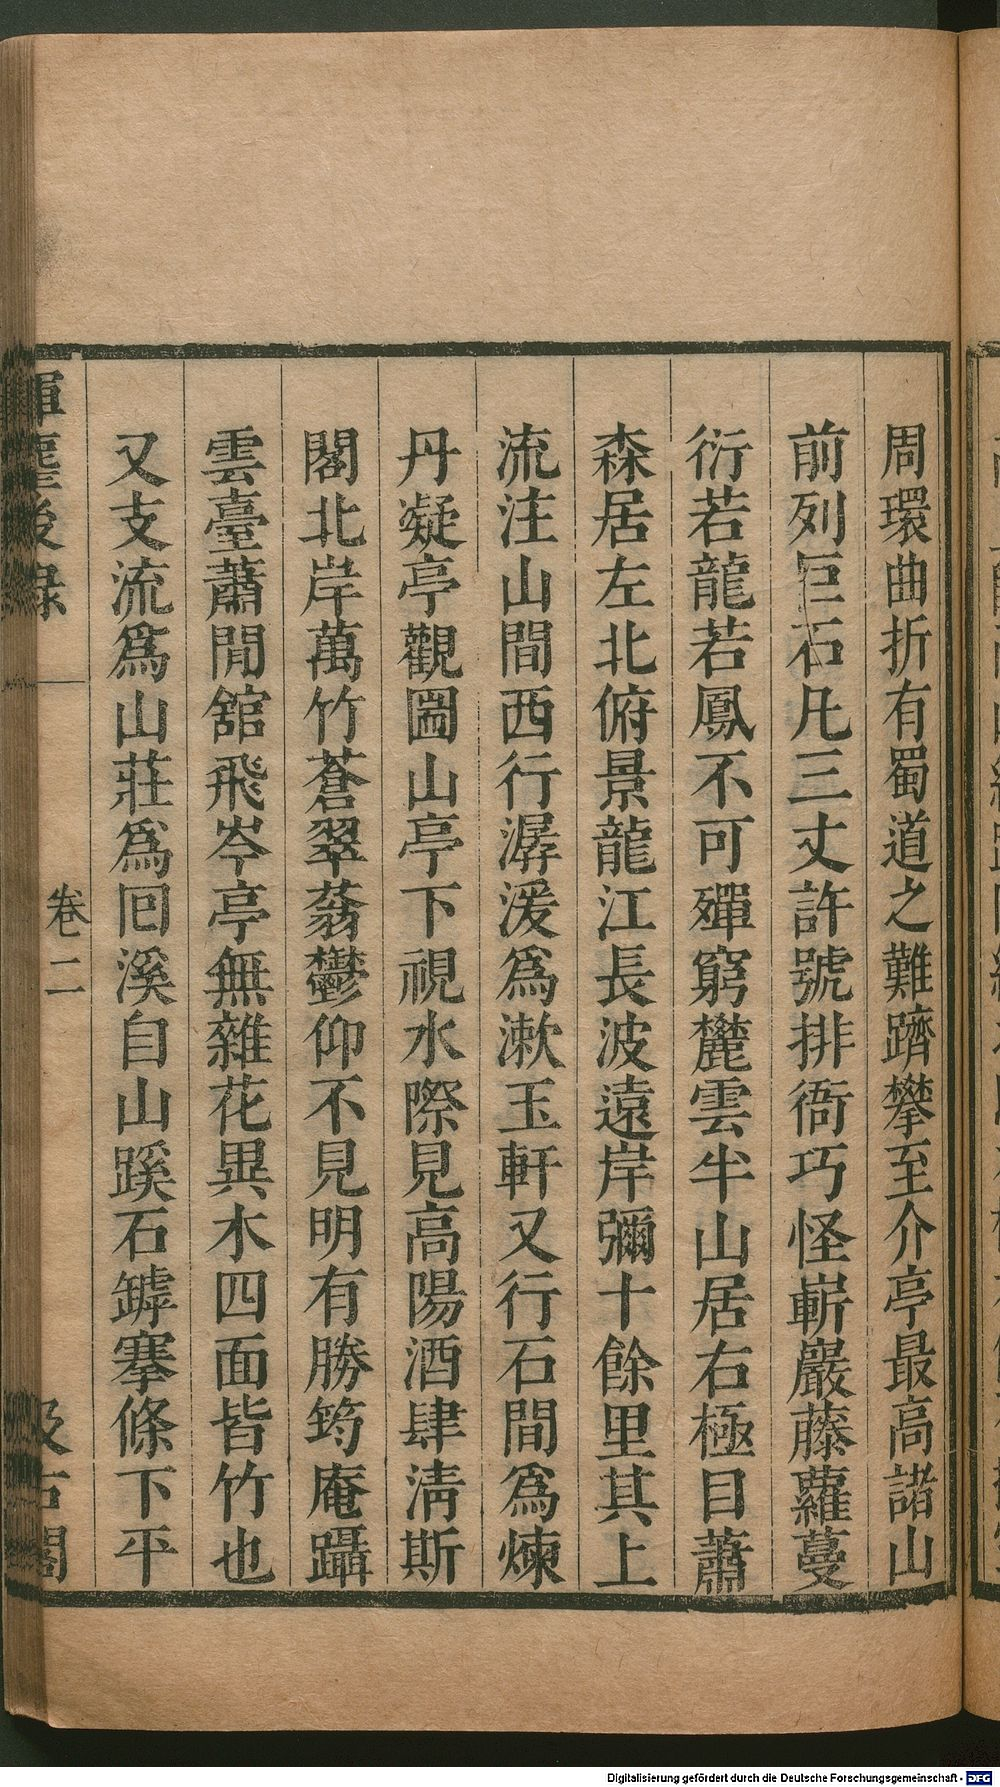 周環曲折有蜀道之難躋攀至介亭最高諸山
前列巨石凡三丈許號排衙巧怪嶄巖藤蘿蔓
衍若龍若鳳不可殫窮麓雲半山居右極目蕭
森居左北俯景龍江長波遠岸彌十餘里其上
流注山間西行潺湲爲漱玉軒又行石間爲煉
丹凝亭觀圌山亭下視水際見高陽酒肆淸斯
閣北岸萬竹蒼翠蓊鬱仰不見明有勝筠庵躡
雲臺蕭閒舘飛岑亭無雜花異木四面皆竹也
又支流爲山莊爲囘溪自山蹊石罅搴條下平
揮麈後錄
卷二
汲古閣
Digitalisierung gefördert durch die Deutsche Forschungsgemeinschaft - DFG